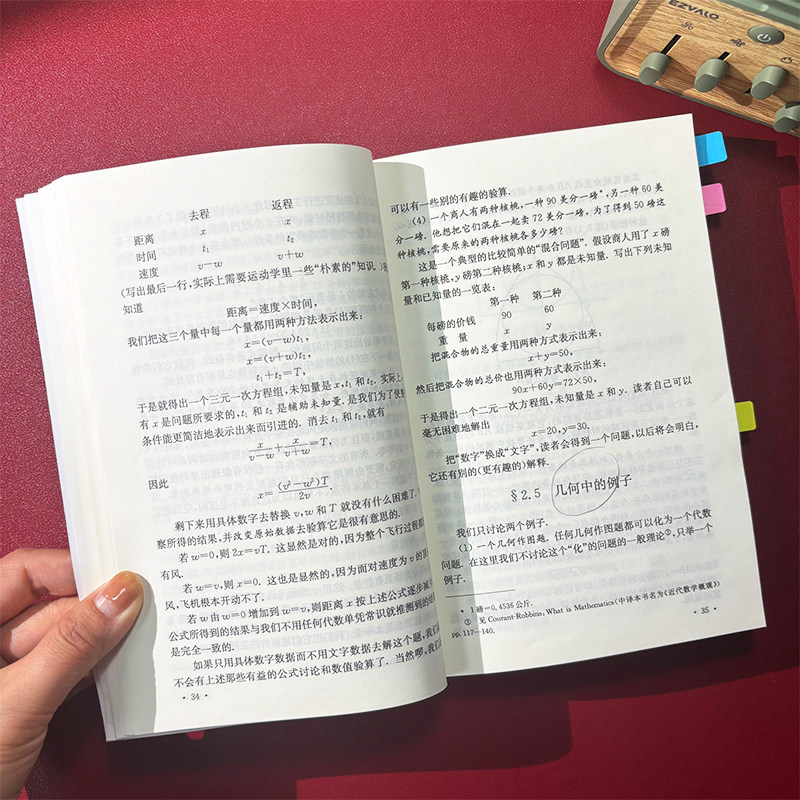 EZVALO
去程 返程
距离 x x
时间 t₁ t₂
速度 v－w v＋w
(写出最后一行,实际上需要运动学里一些“朴素的”知识.)
知道
距离＝速度×时间,
我们把这三个量中每一个量都用两种方法表示出来:
x＝(v－w)t₁,
x＝(v＋w)t₂,
t₁＋t₂＝T,
于是就得出一个三元一次方程组,未知量是 x,t₁ 和 t₂. 实际上
有 x 是问题所要求的,t₁ 和 t₂ 是辅助未知量.是我们为了使
条件能更简洁地表示出来而引进的. 消去 t₁ 和 t₂,就有
x/(v－w)＋x/(v＋w)＝T,
因此
x＝(v²－w²)T/2v.
剩下来用具体数字去替换 v,w 和 T 就没有什么困难了.
察所得的结果,并改变原始数据去验算它是很有意思的.
若 w＝0,则 2x＝vT. 这显然是对的,因为整个飞行过程
有风.
若 w＝v,则 x＝0. 这也是显然的,因为面对速度为 v 的
风,飞机根本开动不了.
若 w 由 w＝0 增加到 w＝v,则距离 x 按上述公式逐步减
公式所得到的结果与我们不用任何代数单凭常识就推测到的结
是完全一致的.
如果只用具体数字数据而不用文字数据去解这个题,我们
不会有上述那些有益的公式讨论和数值验算了. 当然啰,我们
• 34 •
可以有一些别的有趣的验算.
(4) 一个商人有两种核桃,一种 90 美分一磅*,另一种 60 美
分一磅. 他想把它们混在一起卖 72 美分一磅,为了得到 50 磅这
种核桃,需要原来的两种核桃各多少磅?
这是一个典型的比较简单的“混合问题”. 假设商人用了 x 磅
第一种核桃,y 磅第二种核桃;x 和 y 都是未知量. 写出下列未知
量和已知量的一览表:
第一种 第二种
每磅的价钱 90 60
重 量 x y
把混合物的总重量用两种方式表示出来:
x＋y＝50,
然后把混合物的总价也用两种方式表示出来:
90x＋60y＝72×50,
于是得出一个二元一次方程组,未知量是 x 和 y. 读者自己可以
毫无困难地解出
x＝20,y＝30.
把“数字”换成“文字”,读者会得到一个问题,以后将会明白,
它还有别的(更有趣的)解释.
§2.5 几何中的例子
我们只讨论两个例子.
(1) 一个几何作图题. 任何几何作图题都可以化为一个代数
问题. 在这里我们不讨论这个“化”的问题的一般理论③,只举一个
例子.
* 1 磅＝0.4536 公斤.
③ 见 Courant-Robbins; What is Mathematics(中译本书名为《近代数学概观》)
pp. 117－140.
• 35 •